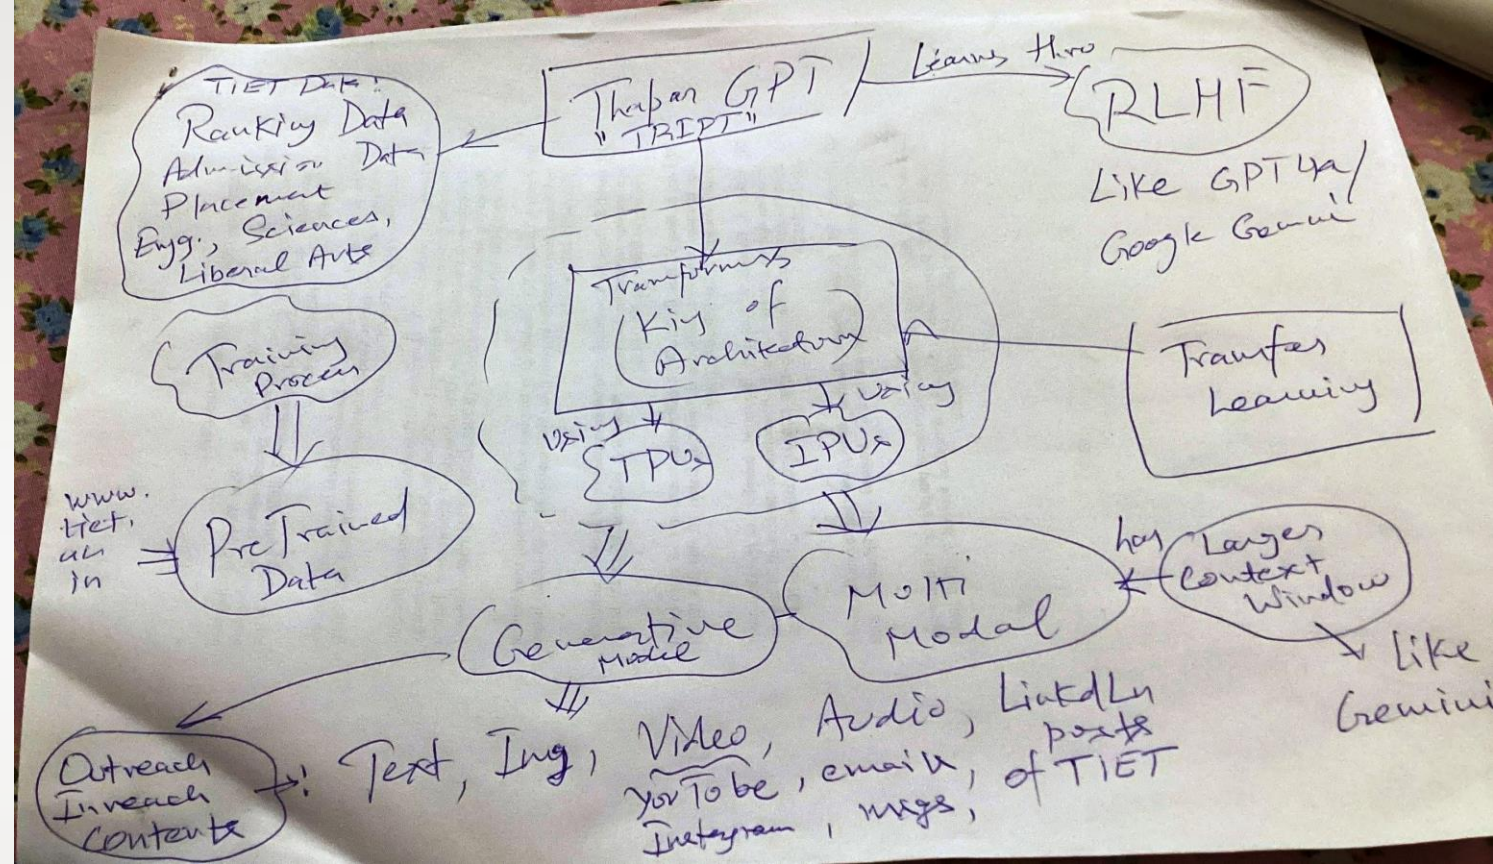 TIET Data:
Ranking Data
Admission Data
Placement
Engg., Sciences,
Liberal Arts
Thapar GPT
"TRIPT"
Learns thro
RLHF
Like GPT4a/
Google Gemini
Transformers
(King of
Architecture)
Transfer
Learning
using
TPUs
using
IPUs
Training
Process
www.
tiet.
in
PreTrained
Data
Generative
Model
Multi
Modal
has
Larger
Context
Window
Like
Gemini
Outreach
Inreach
Contents
: Text, Img, Video, Audio, LinkdLn
posts
YouTobe, emails, of TIET
Instagram, msgs,